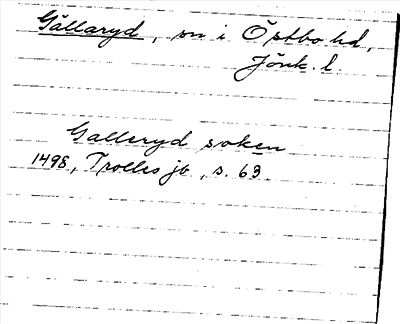 Gällaryd, sn i Östbo hd,
Jönk. l.
Galleryd soken
1498, Trolles jb, s. 63.